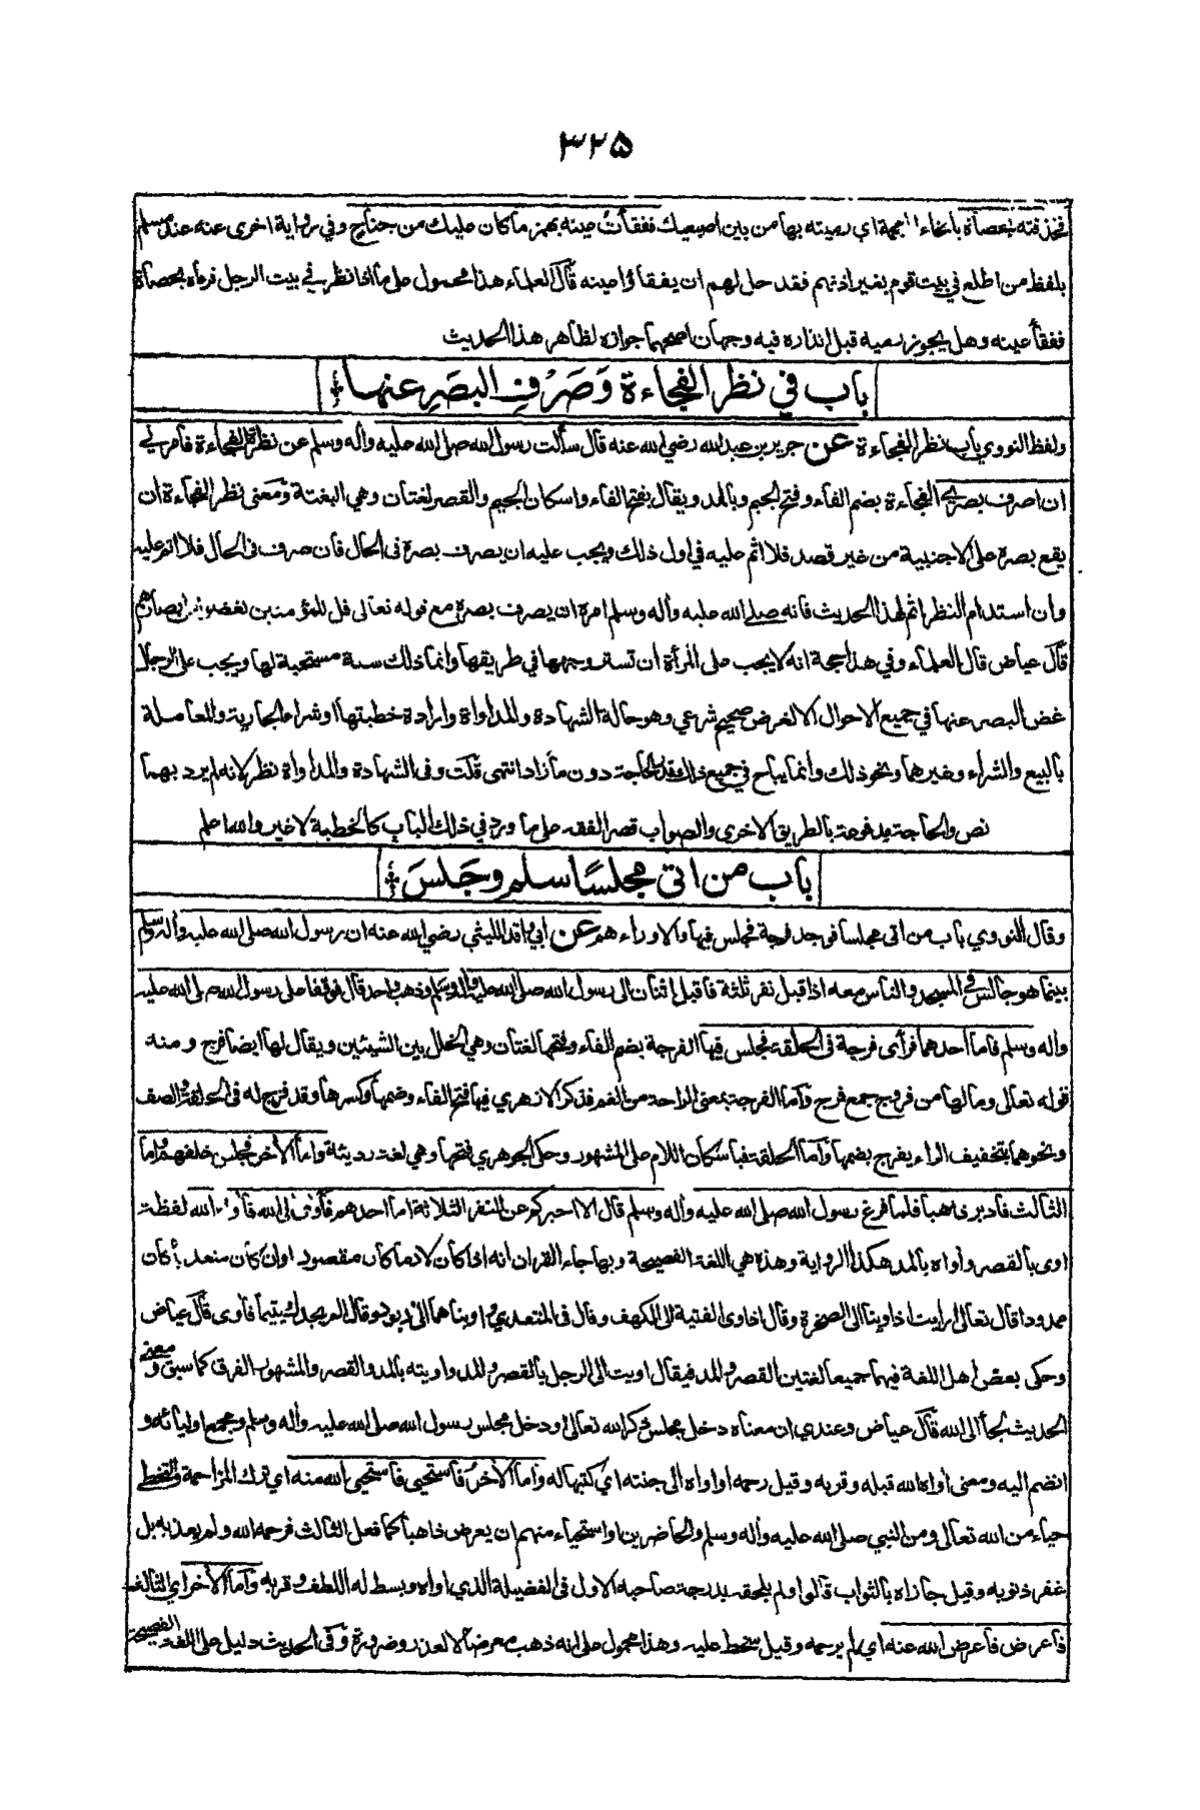 ٣٢٥
فخذفته بعصاة بالخاء المعجمة اي رميته بها من بين اصبعيك ففقأت عينه بهمز ما كان عليك من جناح وفي رواية اخرى عنه عند مسلم
بلفظ من اطلع في بيت قوم بغير اذنهم فقد حل لهم ان يفقأوا عينه قال العلماء هذا محمول على ما اذا نظر في بيت الرجل فرماه بحصاة
ففقأ عينه وهل يجوز رميه قبل انذاره فيه وجهان اصحهما جوازه لظاهر هذا الحديث
باب في نظر الفجاءة وَصَرْفِ البصَرِ عنها
ولفظ النووي باب نظر الفجاءة عن جرير بن عبد الله رضي الله عنه قال سألت رسول الله صلى الله عليه وأله وسلم عن نظرة الفجاءة فأمرني
ان اصرف بصري الفجاءة بضم الفاء وفتح الجيم وبالمد ويقال بفتح الفاء واسكان الجيم والقصر لغتان وهي البغتة ومعنى نظر الفجاءة ان
يقع بصره على الاجنبية من غير قصد فلا اثم عليه في اول ذلك ويجب عليه ان يصرف بصره فى الحال فان صرف فى الحال فلا اثم عليه
وان استدام النظر اثم لهذا الحديث فانه صلى الله عليه وأله وسلم امره ان يصرف بصره مع قوله تعالى قل للمؤمنين يغضوا من ابصارهم
قال عياض قال العلماء وفي هذا حجة انه لا يجب على المرأة ان تستر وجهها في طريقها وانما ذلك سنة مستحبة لها ويجب على الرجال
غض البصر عنها في جميع الاحوال الا لغرض صحيح شرعي وهو حالة الشهادة والمداواة وارادة خطبتها او شراء الجارية والمعاملة
بالبيع والشراء وغيرها ونحو ذلك وانما يباح في جميع ذلك قدر الحاجة دون ما زاد انتهى قلت وفى الشهادة والمداواة نظر لانه لم يرد بهما
نص والحاجة مدفوعة بالطريق الاخرى والصواب قصر الفقه على ما ورد في ذلك الباب كالخطبة لا غير والله اعلم
باب من اتى مجلسًا سلم وجَلسَ
وقال النووي باب من اتى مجلسا فوجد فرجة فجلس فيها والا وراءهم عن ابي واقد الليثي رضي الله عنه ان رسول الله صلى الله عليه وأله وسلم
بينما هو جالس في المسجد والناس معه اذ اقبل نفر ثلثة فأقبل اثنان الى رسول الله صلى الله عليه وأله وسلم وذهب واحد قال فوقفا على رسول الله صلى الله عليه
وأله وسلم فاما احدهما فرأى فرجة فى الحلقة فجلس فيها الفرجة بضم الفاء وفتحها لغتان وهي الخلل بين الشيئين ويقال لها ايضا فرج ومنه
قوله تعالى وما لها من فروج جمع فرج وأما الفرجة بمعنى الراحة من الغم فذكر الازهري فيها فتح الفاء وضمها وكسرها وقد فرج له فى الحلقة والصف
ونحوهما بتخفيف الراء يفرج بضمها وأما الحلقة فبأسكان اللام على المشهور وحكى الجوهري فتحها وهي لغة رديئة واما الأخر فجلس خلفهم واما
الثالث فأدبر ذاهبا فلما فرغ رسول الله صلى الله عليه وأله وسلم قال الا اخبركم عن النفر الثلاثة اما احدهم فأوى الى الله فأواه الله لفظة
اوى بالقصر وأواه بالمد هكذا الرواية وهذه هي اللغة الفصيحة وبها جاء القران انه اذا كان لازما كان مقصورا وان كان متعديا كان
ممدودا قال تعالى ارايت اذ اوينا الى الصخرة وقال اذ اوى الفتية الى الكهف وقال فى المتعدي وأويناهما الى ربوة وقال الم يجدك يتيما فأوى قال عياض
وحكى بعض اهل اللغة فيهما جميعا لغتين القصر والمد فيقال اويت الى الرجل بالقصر والمد واويته بالمد والقصر والمشهور الفرق كما سبق ومعنى
الحديث لجأ الى الله قال عياض وعندي ان معناه دخل مجلس ذكر الله تعالى او دخل مجلس رسول الله صلى الله عليه وأله وسلم ومجمع اوليائه و
انضم اليه ومعنى أواه الله قبله وقربه وقيل رحمه او اواه الى جنته اي كتبها له وأما الأخر فأستحيى فأستحيى الله منه اي ترك المزاحمة والتخطي
حياء من الله تعالى ومن النبي صلى الله عليه وأله وسلم والحاضرين او استحياء منهم ان يعرض ذاهبا كما فعل الثالث فرحمه الله ولم يعذبه بل
غفر ذنوبه وقيل جازاه بالثواب قالوا ولم يلحقه بدرجة صاحبه الاول فى الفضيلة الذي اواه وبسط له اللطف وقربه وأما الأخر اي الثالث
فأعرض فأعرض الله عنه اي لم يرحمه وقيل سخط عليه وهذا محمول على انه ذهب معرضا لا لعذر وضرورة وفى الحديث دليل على اللغة الفصيحة